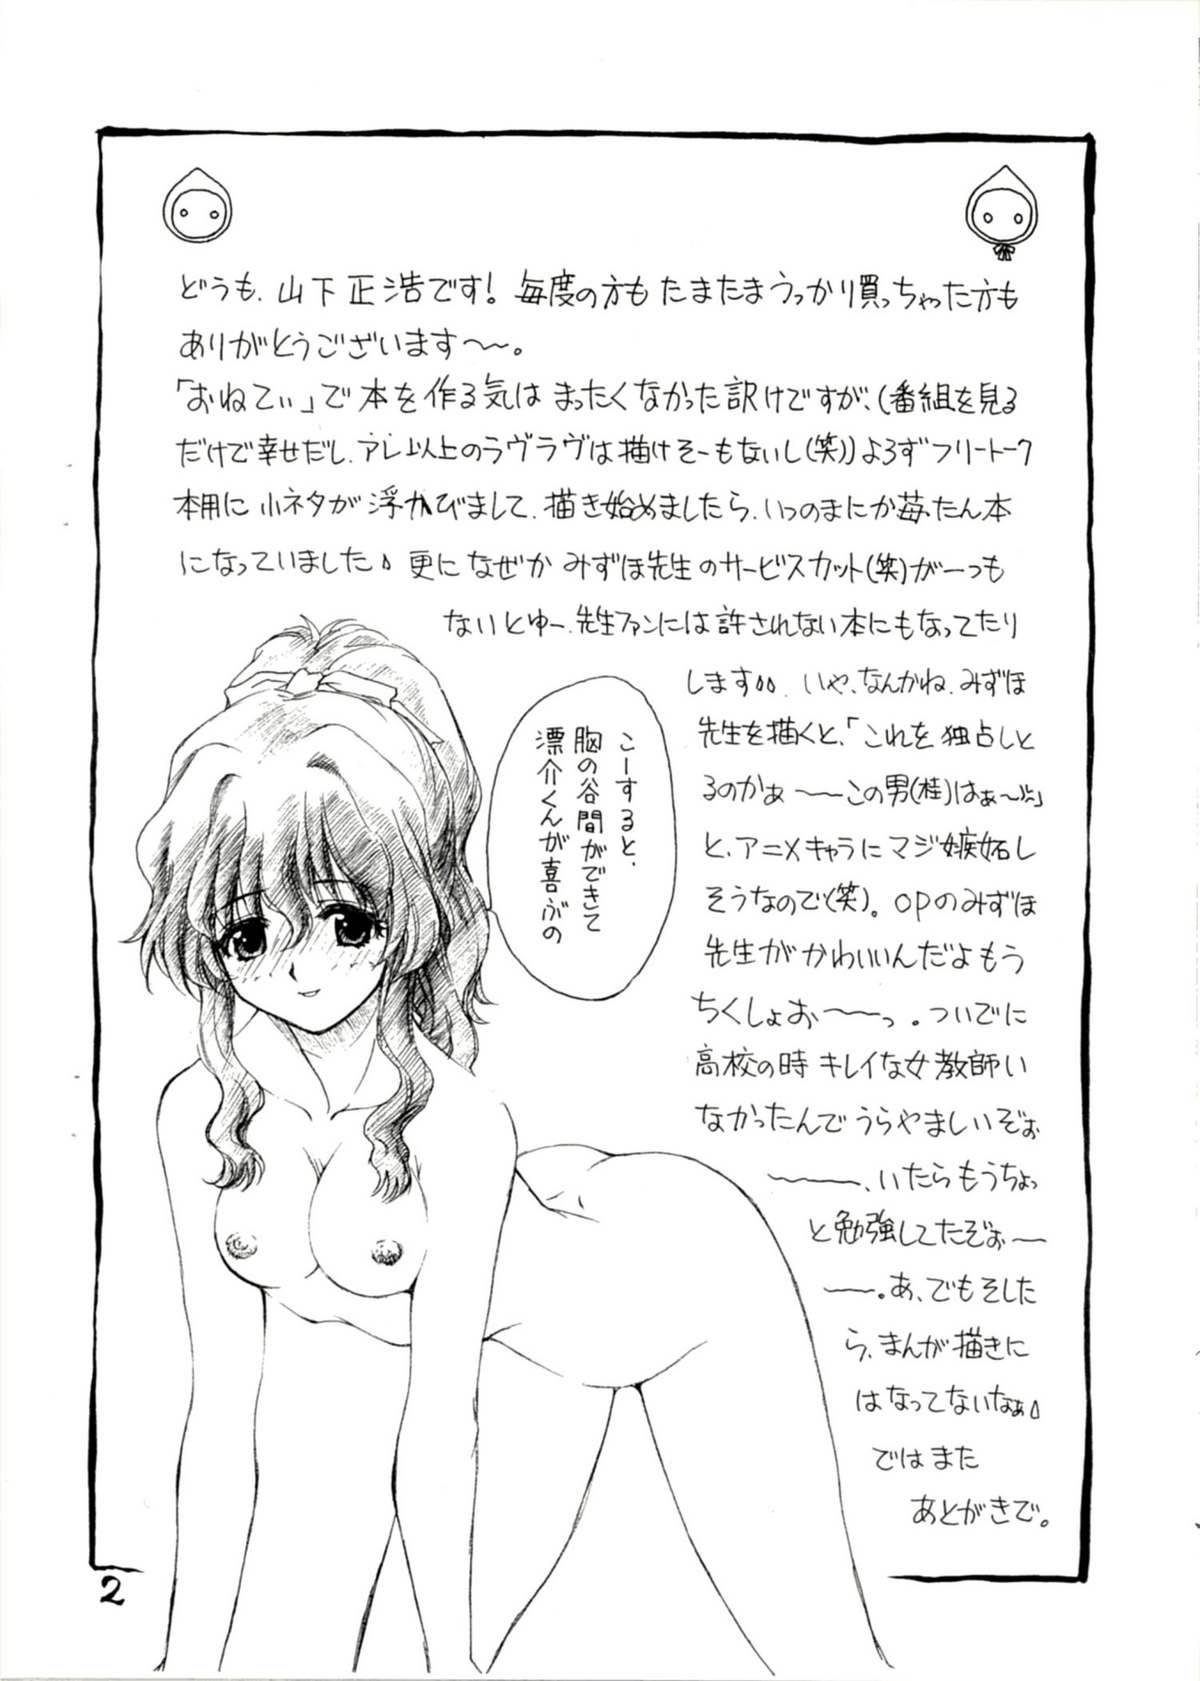 どうも、山下正浩です！毎度の方も たまたまうっかり買っちゃった方も
ありがとうございます〜〜。
「おねてぃ」で本を作る気は まったくなかった訳けですが、(番組を見る
だけで幸せだし、アレ以上のラヴラヴは描けそーもないし(笑))よろずフリートーク
本用に 小ネタが浮かびまして、描き始めましたら、いつのまにか苺たん本
になっていました 更になぜか みずほ先生のサービスカット(笑)が一つも
ないとゆー、先生ファンには許されない本にもなってたり
します いや、なんかね、みずほ
先生を描くと、「これを独占しと
るのかぁ〜〜この男(桂)はぁ〜」
と、アニメキャラにマジ嫉妬し
そうなので(笑)。OPのみずほ
先生がかわいいんだよもう
ちくしょお〜〜っ。ついでに
高校の時キレイな女教師い
なかったんでうらやましいぞぉ
〜〜、いたらもうちょっ
と勉強してたぞぉ〜
〜〜。あ、でもそした
ら、まんが描きに
はなってないなぁ
ではまた
あとがきで。
こーすると、
胸の谷間ができて
漂介くんが喜ぶの
2